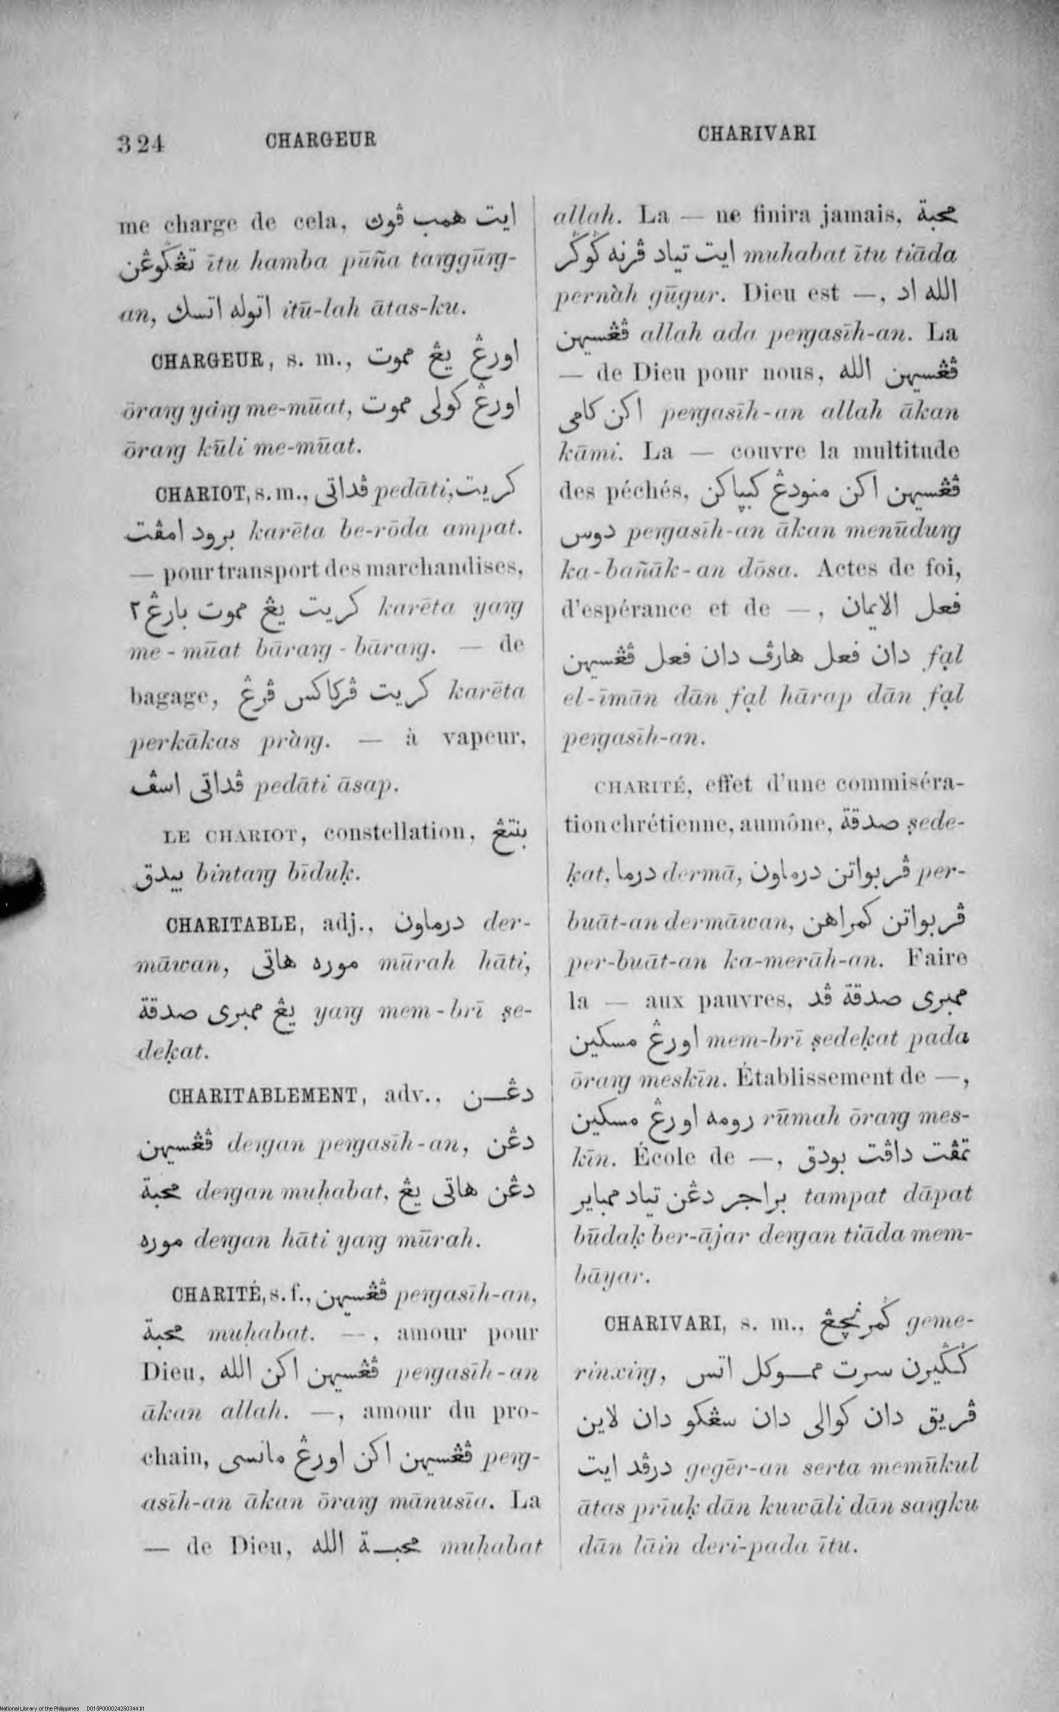 324 CHARGEUR CHARIVARI
me charge de cela, ايت همب ڤوڽ
تڠݢوڠن ītu hamba pūña taŋgūŋ-
an, اتوله اتسك itū-lah ātas-ku.
CHARGEUR, s. m., اورڠ يڠ مموت
ōraŋ yàŋ me-mūat, اورڠ كولى مموت
ōraŋ kūli me-mūat.
CHARIOT, s. m., ڤداتى pedāti, كريت
برود امڤت karēta be-rōda ampat.
— pour transport des marchandises,
كريت يڠ مموت بارڠ٢ karēta yaŋ
me-mūat bāraŋ-bāraŋ. — de
bagage, كريت ڤركاكس ڤرڠ karēta
perkākas pràŋ. — à vapeur,
ڤداتى اسڤ pedāti āsap.
LE CHARIOT, constellation, بنتڠ
بيدق bintaŋ bīduḳ.
CHARITABLE, adj., درماون der-
māwan, موره هاتى mūrah hāti,
يڠ ممبرى صدقة yaŋ mem-brī ṣe-
deḳat.
CHARITABLEMENT, adv., دڠن
ڤڠسيهن deŋan peŋasīh-an, دڠن
محبة deŋan muḥabat, دڠن هاتى يڠ
موره deŋan hāti yaŋ mūrah.
CHARITÉ, s. f., ڤڠسيهن peŋasīh-an,
محبة muḥabat. —, amour pour
Dieu, ڤڠسيهن اكن الله peŋasīh-an
ākan allah. —, amour du pro-
chain, ڤڠسيهن اكن اورڠ مانسى peŋ-
asīh-an ākan ōraŋ mānusīa. La
— de Dieu, محبة الله muḥabat
allah. La — ne finira jamais, محبة
ايت تياد ڤرنه ݢوݢر muhabat ītu tiāda
pernàh gūgur. Dieu est —, الله اد
ڤڠسيهن allah ada peŋasīh-an. La
— de Dieu pour nous, ڤڠسيهن الله
اكن كامى peŋasīh-an allah ākan
kāmi. La — couvre la multitude
des péchés, ڤڠسيهن اكن منودڠ كبڽاكن
دوس peŋasīh-an ākan menūduŋ
ka-bañāk-an dōsa. Actes de foi,
d'espérance et de —, فعل الايمان
دان فعل هارڤ دان فعل ڤڠسيهن fạl
el-īmān dān fạl hārap dān fạl
peŋasīh-an.
CHARITÉ, effet d'une commiséra-
tion chrétienne, aumône, صدقة ṣede-
ḳat, درما dermā, ڤربواتن درماون per-
buāt-an dermāwan, ڤربواتن كمراهن
per-buāt-an ka-merāh-an. Faire
la — aux pauvres, ممبرى صدقة ڤد
اورڠ مسكين mem-brī ṣedeḳat pada
ōraŋ meskīn. Établissement de —,
رومه اورڠ مسكين rūmah ōraŋ mes-
kīn. École de —, تمڤت داڤت بودق
براجر دڠن تياد ممباير tampat dāpat
būdaḳ ber-ājar deŋan tiāda mem-
bāyar.
CHARIVARI, s. m., ݢمرنچڠ geme-
rinxiŋ, ݢݢيرن سرت مموكل اتس
ڤريق دان كوالى دان سڠكو دان لاين
درڤد ايت gegēr-an serta memūkul
ātas prīuḳ dān kuwāli dān saŋku
dān lāin deri-pada ītu.
National Library of the Philippines